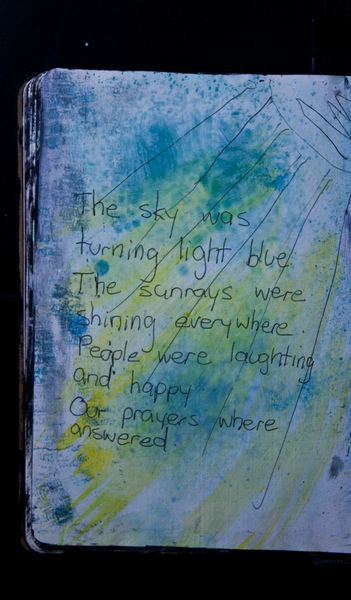 The sky was
turning light blue
The sunrays were
shining everywhere
People were laughting
and happy
Our prayers where
answered